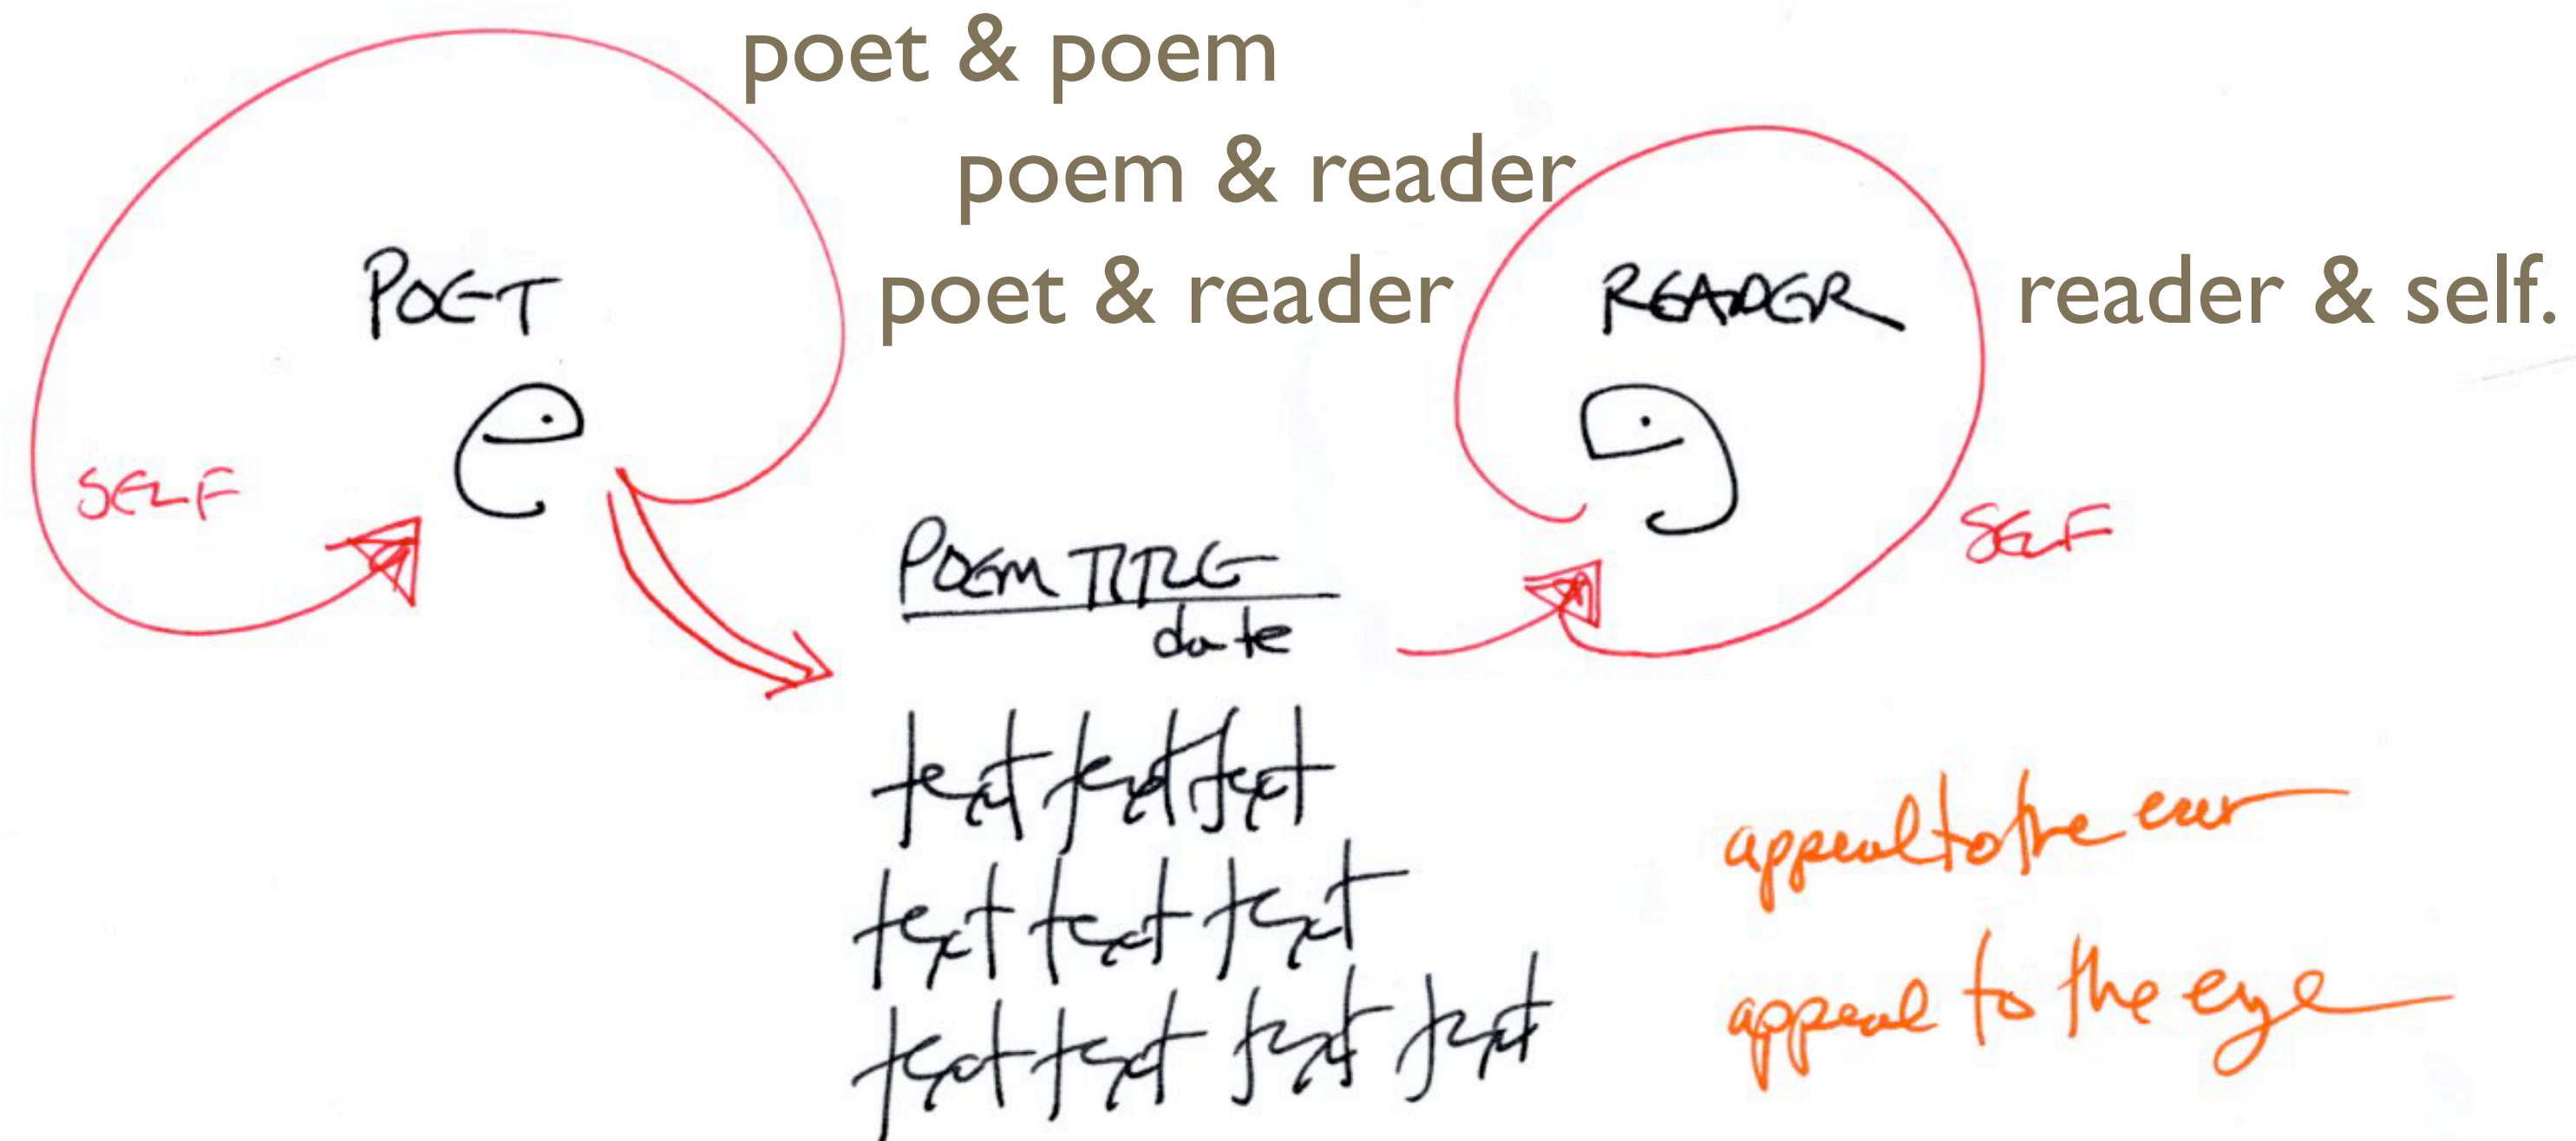 poet & poem
poem & reader
poet & reader
reader & self.
POET
READER
SELF
SELF
POEM TITLE
date
text text text
text text text
text text text text
appeal to the ear
appeal to the eye